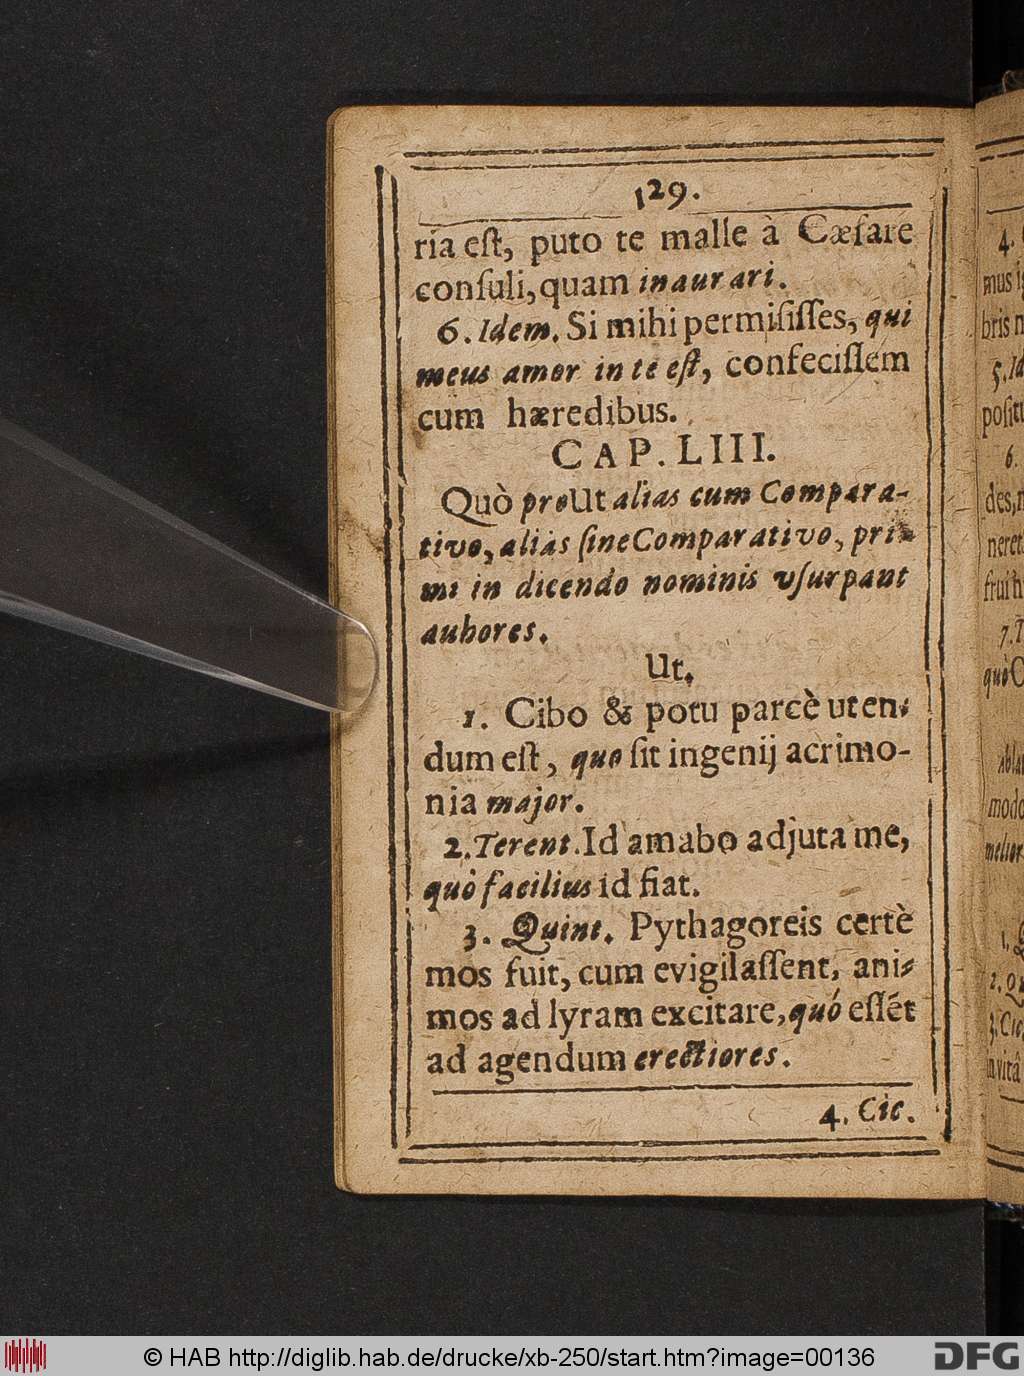 129.
ria est, puto te malle à Cæsare
consuli, quam inaurari.
6. Idem. Si mihi permisisses, qui
meus amor in te est, confecissem
cum hæredibus.
CAP. LIII.
Quò pro Ut alias cum Compara-
tivo, alias sine Comparativo, pri-
mi in dicendo nominis usurpant
auhores.
Ut.
1. Cibo & potu parcè uten-
dum est, quo sit ingenij acrimo-
nia major.
2. Terent. Id amabo adjuta me,
quò facilius id fiat.
3. Quint. Pythagoreis certè
mos fuit, cum evigilassent, ani-
mos ad lyram excitare, quó essét
ad agendum erectiores.
4. Cic.
4.
mus
bris
5. Id
posit
6.
des,
neret
frui
7. T
quò
Abla
modo
melior
1.
2. Qu
3. Cic
in vitâ
© HAB http://diglib.hab.de/drucke/xb-250/start.htm?image=00136
DFG